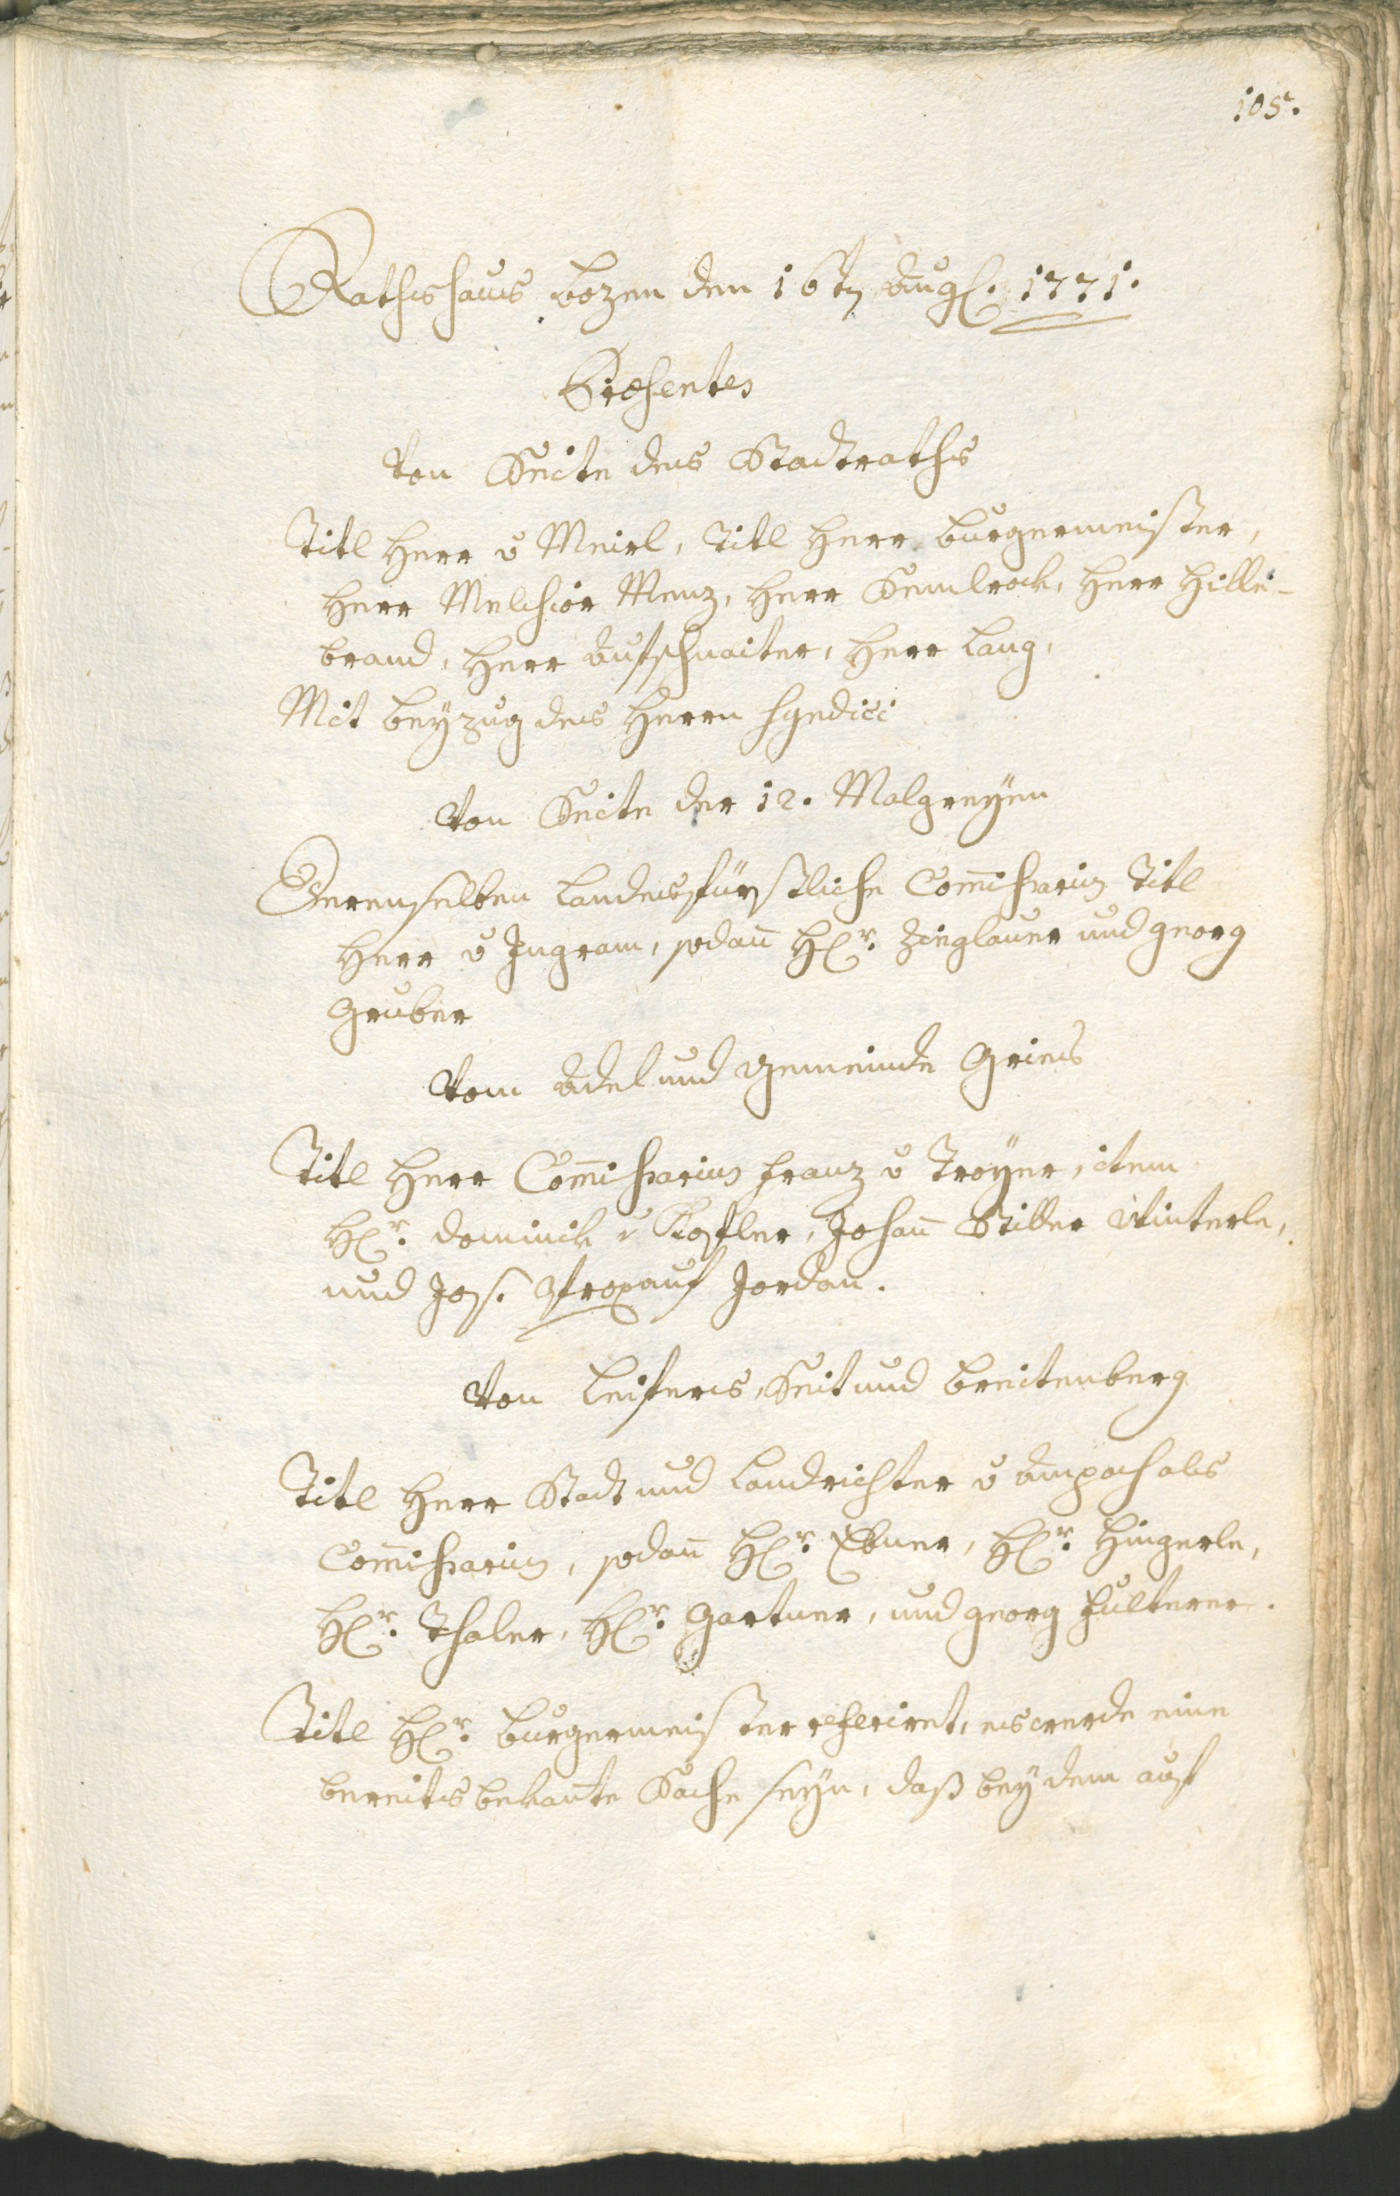 105.
Rathshaus Bozen den 16t Aug. 1771.
Præsentes
Von Seite des Stadtraths
Titl Herr v Meirl, Titl Herr Burgermeister,
Herr Melchior Menz, Herr Semlrock, Herr Hille-
brand, Herr Aufschnaiter, Herr Lang,
Mit beyzug des Herrn Syndici
Von Seite der 12. Malgreyen
Derenselben Landesfürstliche Com̄issarius Titl
Herr v Ingram, sodan̄ Hr. Zieglauer und Georg
Gruber
Vom Adel und Gemeinde Gries
Titl Herr Com̄issarius Franz v Troyer, item
Hr. Dominik v Kofler, Johan̄ Winterle,
und Jos. Jordan.
Von Leifers, Seit und Breitenberg
Titl Herr Stadt und Landrichter v Ampach als
Com̄issarius, sodan̄ Hr. Ebner, Hr. Hingerle,
Hr. Thaler, Hr. Gartner, und Georg Fulterer.
Titl Hr. Burgermeister referiret, es werde eine
bereits bekan̄te Sache seyn, daß bey dem auf